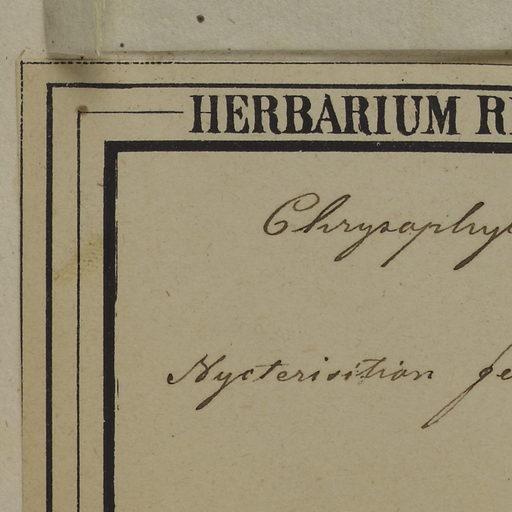 HERBARIUM R
Chrysophyl
Nycterisition fe